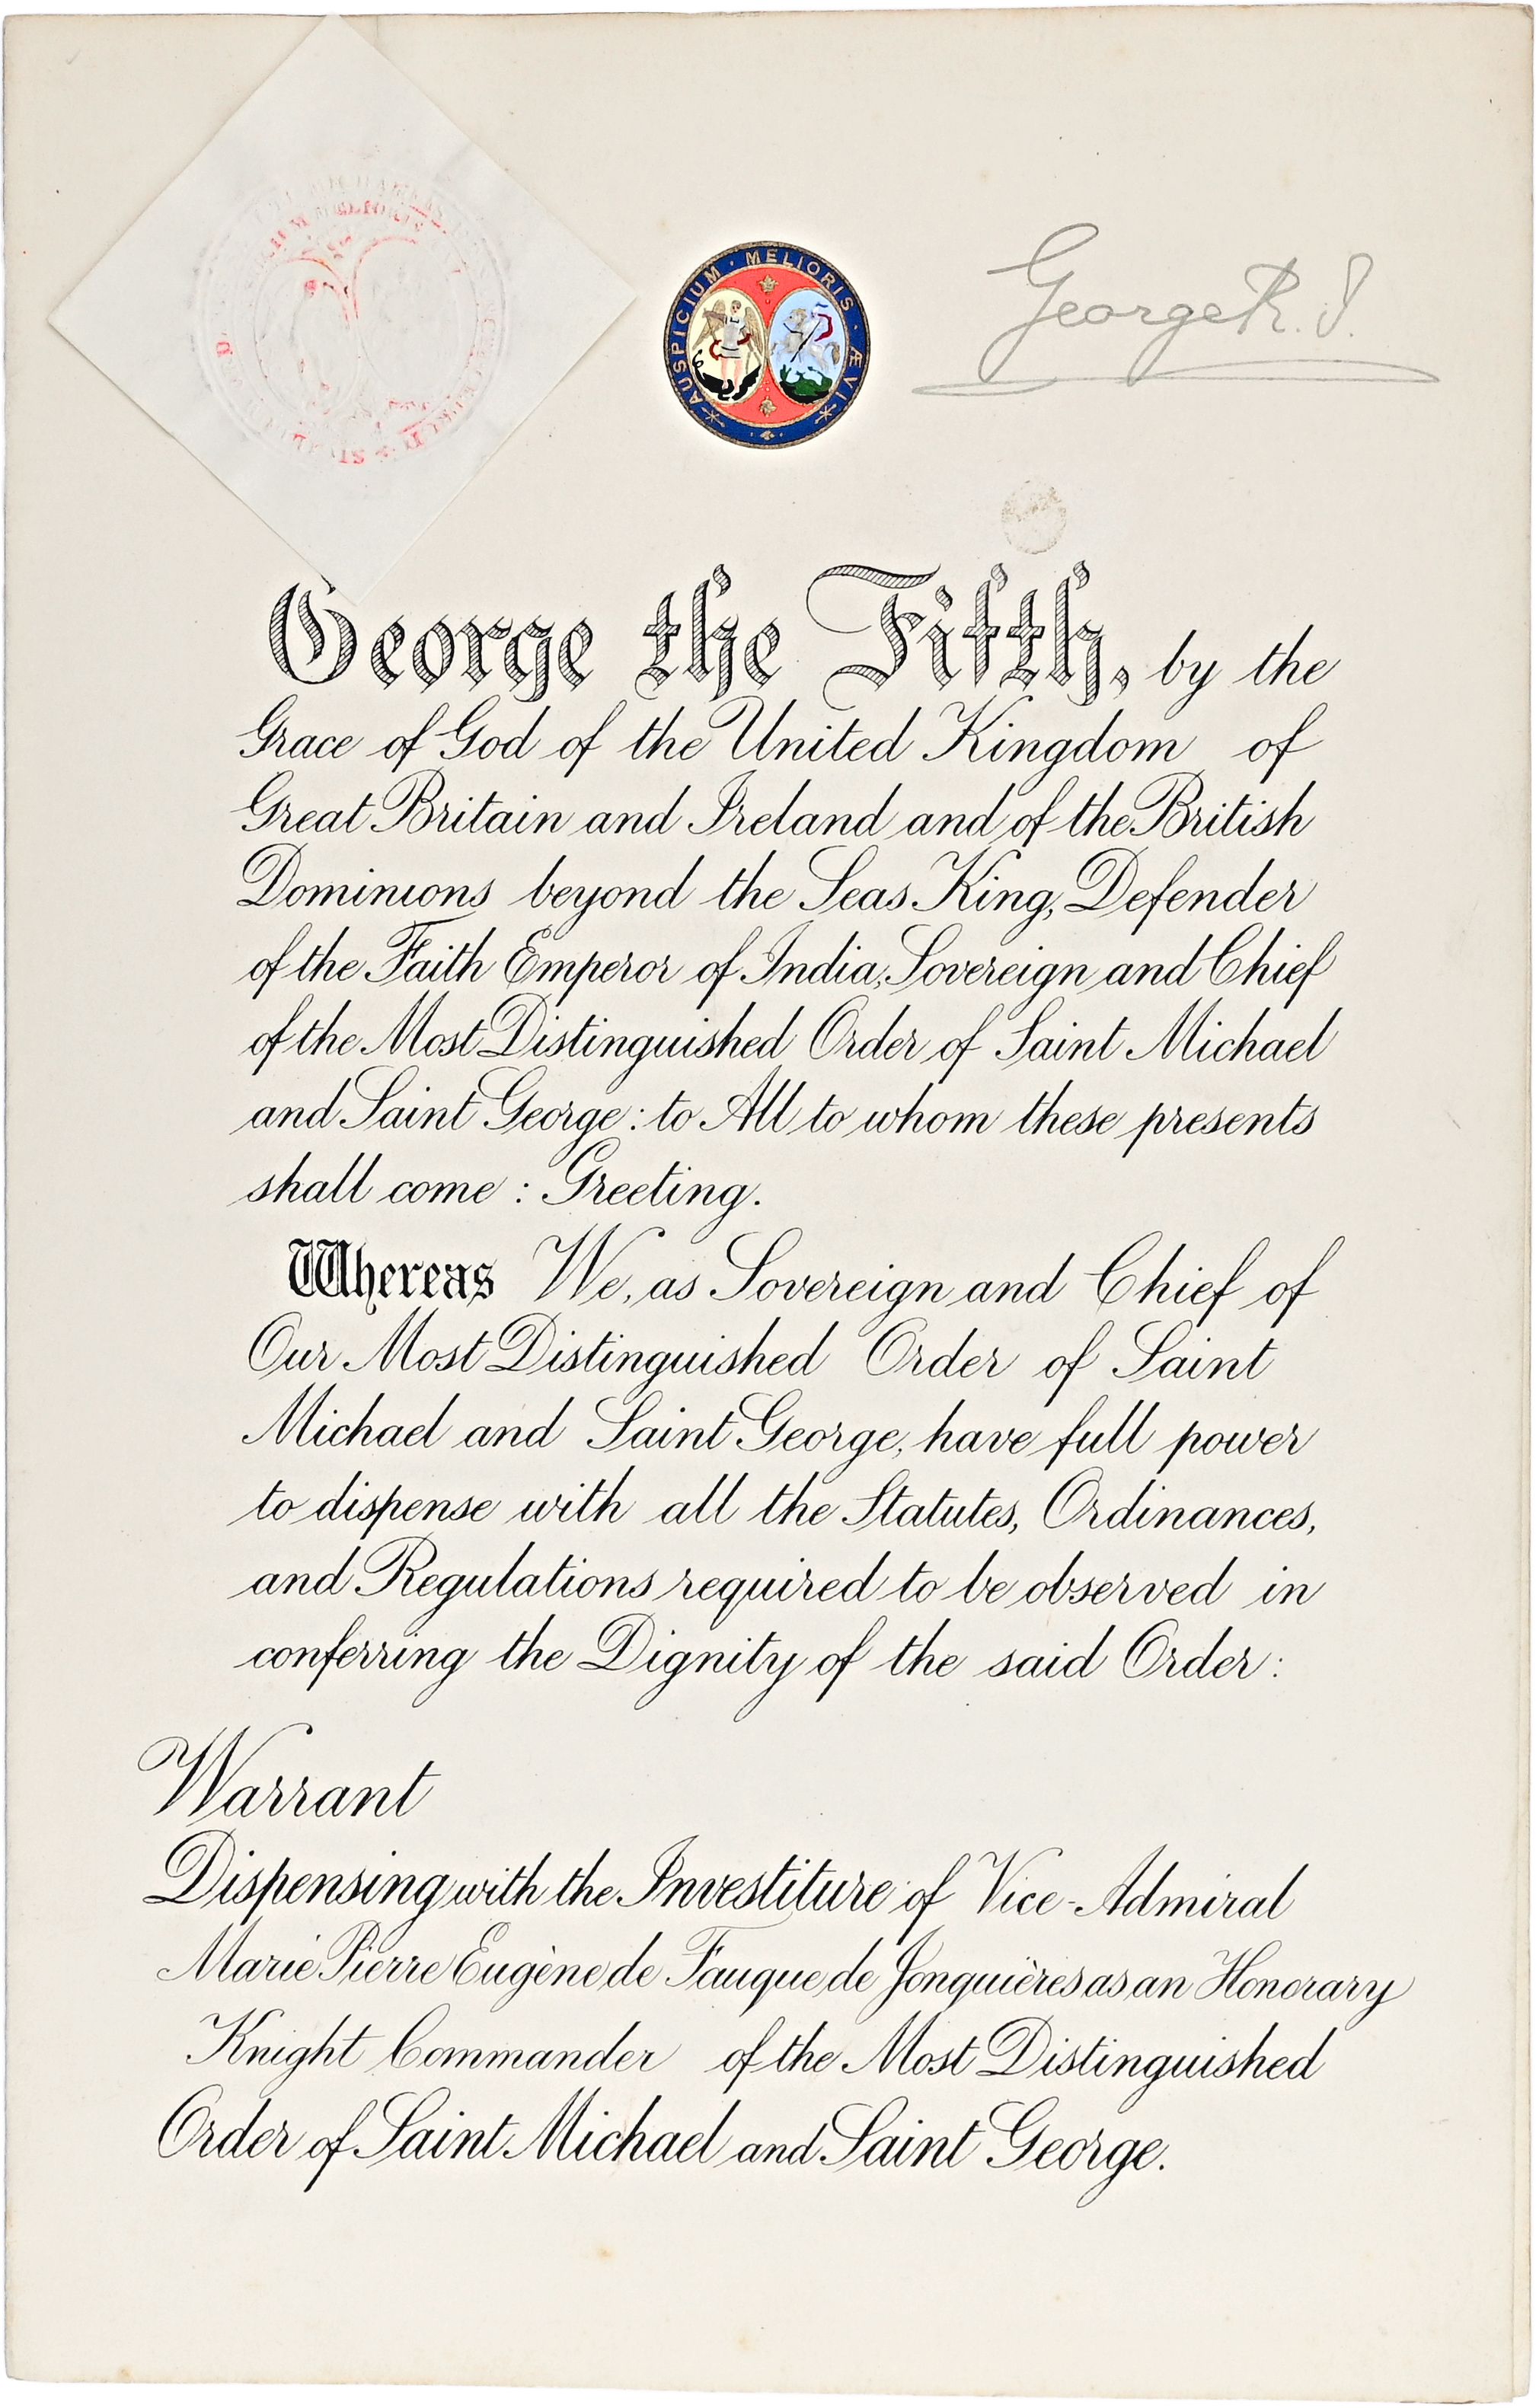 AUSPICIUM · MELIORIS · ÆVI
George R. I.
George the Fifth, by the
Grace of God of the United Kingdom of
Great Britain and Ireland and of the British
Dominions beyond the Seas King, Defender
of the Faith Emperor of India, Sovereign and Chief
of the Most Distinguished Order of Saint Michael
and Saint George : to All to whom these presents
shall come : Greeting.
Whereas We, as Sovereign and Chief of
Our Most Distinguished Order of Saint
Michael and Saint George, have full power
to dispense with all the Statutes, Ordinances,
and Regulations required to be observed in
conferring the Dignity of the said Order :
Warrant
Dispensing with the Investiture of Vice-Admiral
Marie Pierre Eugène de Fauque de Jonquières as an Honorary
Knight Commander of the Most Distinguished
Order of Saint Michael and Saint George.